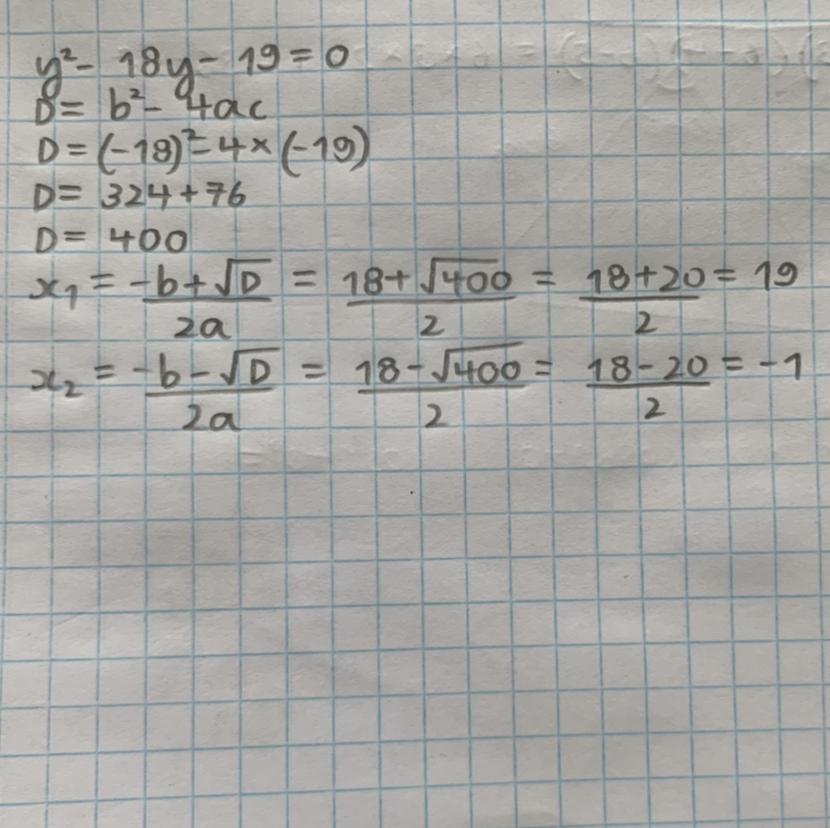 y² - 18y - 19 = 0
D = b² - 4ac
D = (-18)² - 4 × (-19)
D = 324 + 76
D = 400
x₁ = -b + √D / 2a = 18 + √400 / 2 = 18 + 20 / 2 = 19
x₂ = -b - √D / 2a = 18 - √400 / 2 = 18 - 20 / 2 = -1